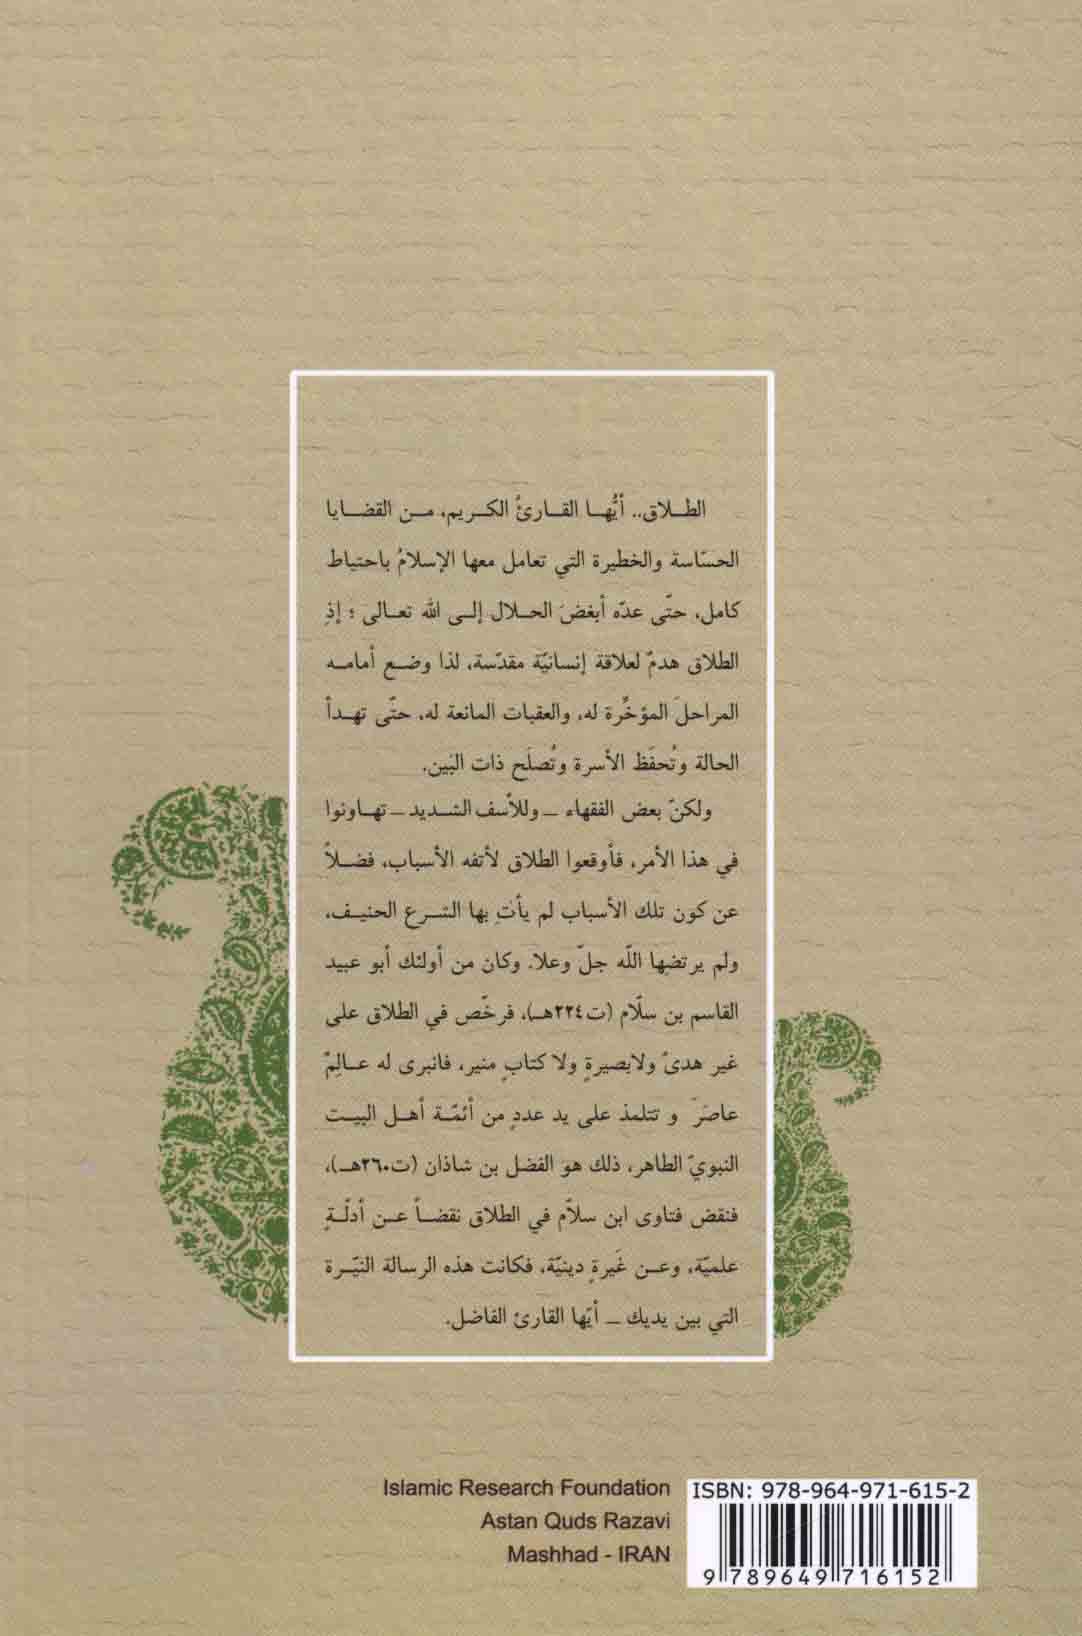 الطلاق.. أيُّها القارئُ الكريم، من القضايا
الحسّاسة والخطيرة التي تعامل معها الإسلامُ باحتياط
كامل، حتّى عدّه أبغضَ الحلال إلى الله تعالى ؛ إذِ
الطلاق هدمٌ لعلاقة إنسانيّة مقدّسة، لذا وضع أمامه
المراحلَ المؤخِّرة له، والعقبات المانعة له، حتّى تهدأ
الحالة وتُحفَظ الأسرة وتُصلَح ذات البَين.
ولكنّ بعض الفقهاء ـ وللأسف الشديد ـ تهاونوا
في هذا الأمر، فأوقعوا الطلاق لأتفه الأسباب، فضلاً
عن كون تلك الأسباب لم يأتِ بها الشرع الحنيف،
ولم يرتضها اللّه جلّ وعلا. وكان من أولئك أبو عبيد
القاسم بن سلّام (ت٢٢٤هـ)، فرخّص في الطلاق على
غير هدىً ولابصيرةٍ ولا كتابٍ منير، فانبرى له عالِمٌ
عاصَرَ و تتلمذ على يد عددٍ من أئمّة أهل البيت
النبويّ الطاهر، ذلك هو الفضل بن شاذان (ت٢٦٠هـ)،
فنقض فتاوى ابن سلاّم في الطلاق نقضاً عن أدلّةٍ
علميّة، وعن غَيرةٍ دينيّة، فكانت هذه الرسالة النيّرة
التي بين يديك ـ أيّها القارئ الفاضل.
Islamic Research Foundation
Astan Quds Razavi
Mashhad - IRAN
ISBN: 978-964-971-615-2
9 789649 716152